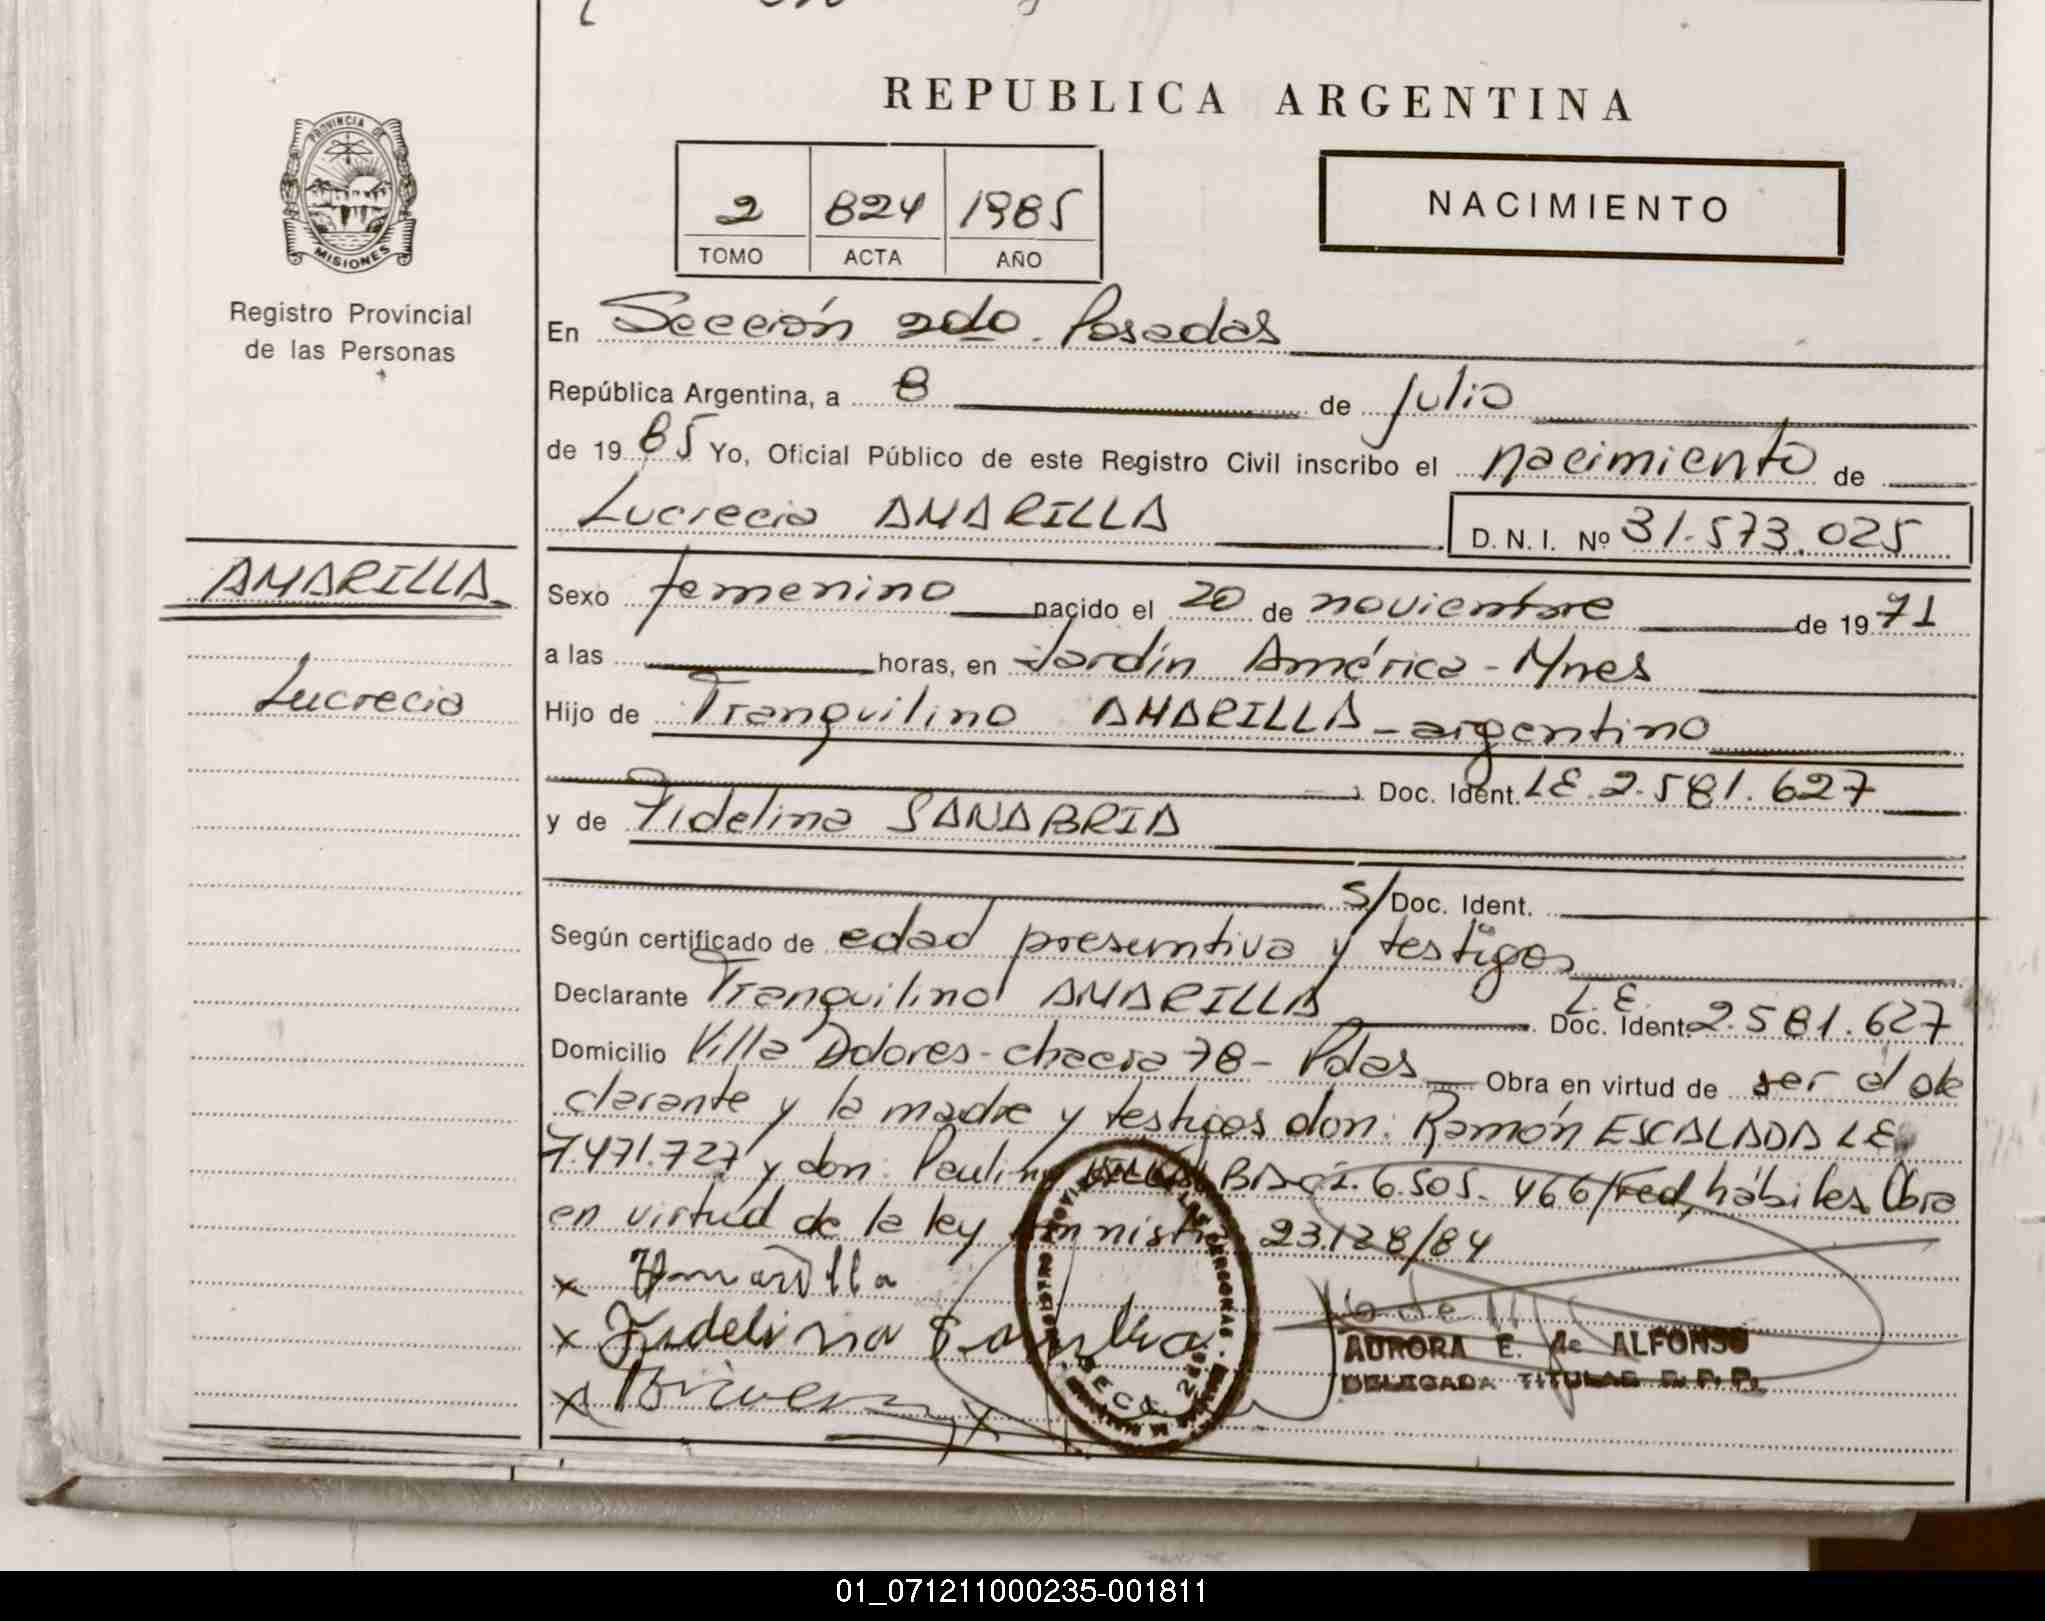 REPUBLICA ARGENTINA
PROVINCIA DE
MISIONES
Registro Provincial
de las Personas
2 824 1985
TOMO ACTA AÑO
NACIMIENTO
En Sección 2do. Posadas
República Argentina, a 8 de Julio
de 1985 Yo, Oficial Público de este Registro Civil inscribo el nacimiento de
Lucrecia AMARILLA D. N. I. Nº 31.573.025
AMARILLA
Lucrecia
Sexo femenino nacido el 20 de noviembre de 1971
a las horas, en Jardín América - Mnes
Hijo de Tranquilino AMARILLA - argentino
Doc. Ident. LE. 2.581.627
y de Fidelina SANABRIA
S/ Doc. Ident.
Según certificado de edad presuntiva y testigos
Declarante Tranquilino AMARILLA Doc. Ident. L.E. 2.581.627
Domicilio Villa Dolores - chacra 78 - Pdas Obra en virtud de ser el de
clarante y la madre y testigos don: Ramón ESCALADA LE
7.471.727 y don: Paulino C.I. 6.505.466/Fed, hábiles. Obra
en virtud de la ley 23.128/84
x Amarilla
x Fidelina
x
x
AURORA E. de ALFONSO
DELEGADA TITULAR R. P. P.
01_071211000235-001811